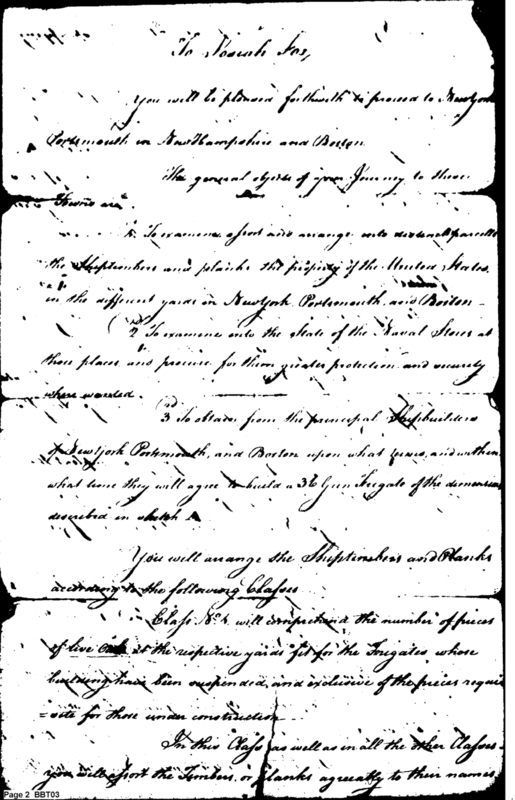 To Josiah Fox,
You will be pleased forthwith to proceed to New York
Portsmouth in New Hampshire and Boston
The general objects of your Journey to these
Towns are
1. To examine assort and arrange into distinct parcells
the Shiptimbers and planks the property of the United States,
in the different yards in New York, Portsmouth, and Boston -
2 To examine into the State of the Naval Stores at
those places and procure for them greater protection and security
where wanted.
3rd To obtain from the principal Shipbuilders
of New York Portsmouth, and Boston upon what terms, and within
what time they will agree to build a 36 Gun Frigate of the dimensions
described in sketch A
You will arrange the Shiptimbers and Planks
according to the following Classes
Class No. 1. will comprehend the number of pieces
of live Oak at the respective yards fit for the Frigates whose
building have been suspended, and exclusive of the pieces requi
=site for those under construction
In this Class, as well as in all the other Classes
you will assort the Timbers, or planks agreeably to their names,
Page 2 BBT03